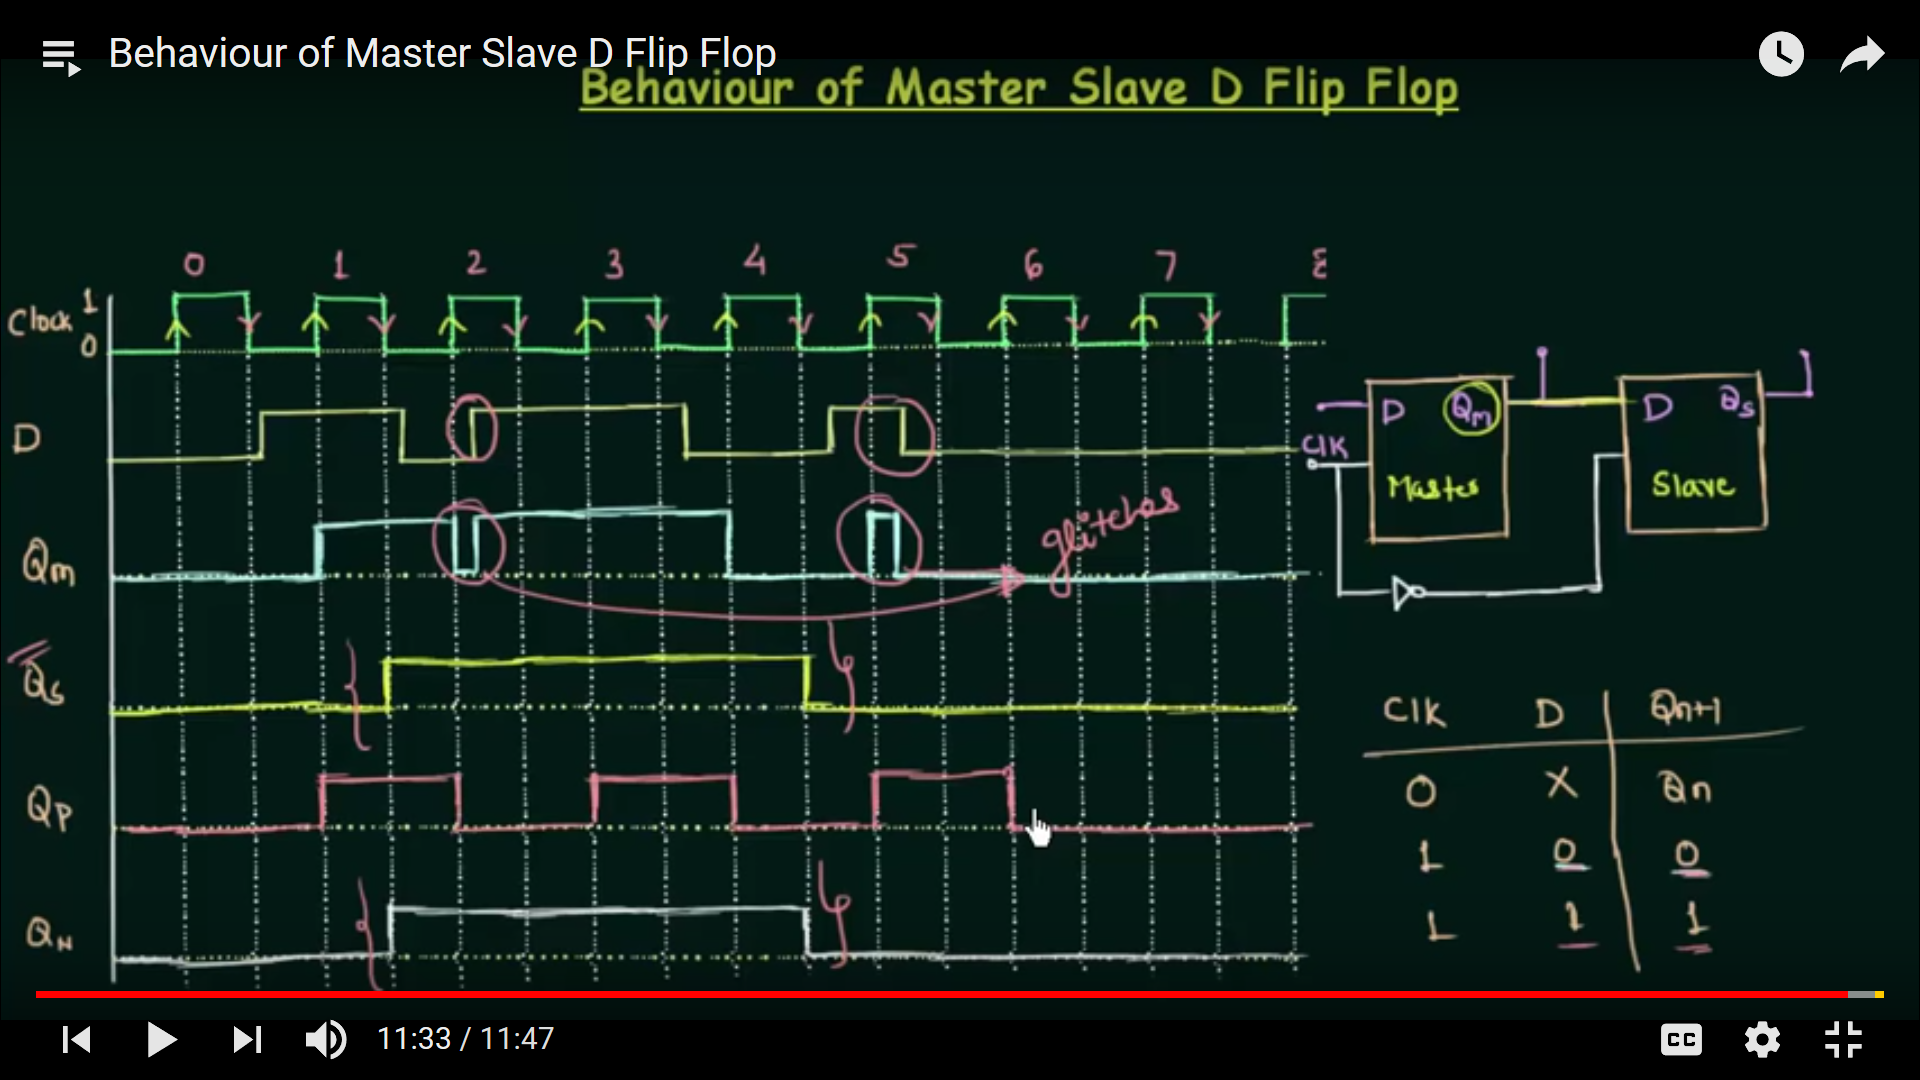 Behaviour of Master Slave D Flip Flop
Behaviour of Master Slave D Flip Flop
0 1 2 3 4 5 6 7 8
Clock 1
0
D
Qm
glitches
Qs
QP
QN
D Qm
D Qs
Clk
Master
Slave
Clk D Qn+1
0 X Qn
1 0 0
1 1 1
11:33 / 11:47
CC